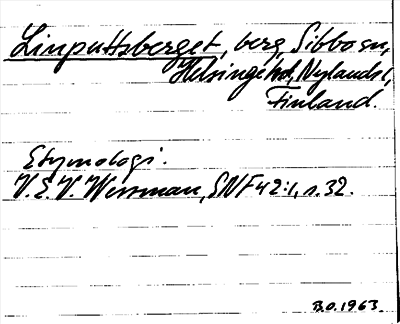 Linputtsberget, berg, Sibbo sn,
Helsinge hd, Nylands l,
Finland.
Etymologi.
V.E.V. Wessman, SNF 42:1, s. 32.
B.O. 1963.